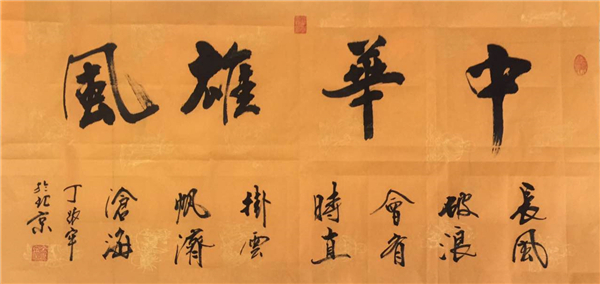 中華雄風
長風
破浪
會有
時直
掛雲
帆濟
滄海
丁
於北京